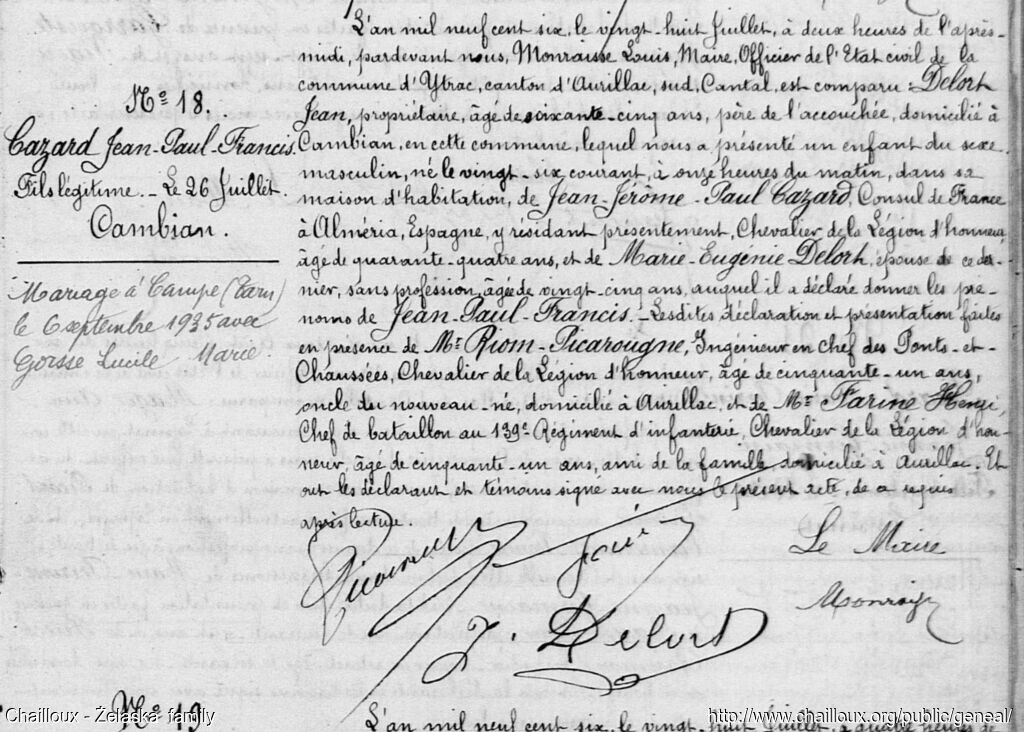 N° 18.
Cazard Jean-Paul-Francis.
Fils légitime. - Le 26 Juillet.
Cambian.
Mariage à (Tarn)
le 6 septembre 1935 avec
Gorsse Lucile Marie.
L'an mil neuf cent six, le vingt-huit Juillet, à deux heures de l'après-
midi, pardevant nous, Monraisse Louis, Maire, Officier de l'Etat civil de la
commune d'Ytrac, canton d'Aurillac, sud, Cantal, est comparu: Delort
Jean, propriétaire, âgé de soixante-cinq ans, père de l'accouchée, domicilié à
Cambian, en cette commune, lequel nous a présenté un enfant du sexe
masculin, né le vingt-six courant, à onze heures du matin, dans sa
maison d'habitation, de Jean-Jérôme-Paul Cazard, Consul de France
à Alméria, Espagne, y résidant présentement, Chevalier de la Légion d'honneur,
âgé de quarante-quatre ans, et de Marie-Eugénie Delort, épouse de ce der-
nier, sans profession, âgée de vingt-cinq ans, auquel il a déclaré donner les pré-
noms de Jean-Paul-Francis. - Lesdites déclaration et présentation faites
en présence de Mr Riom-Picarougne, Ingénieur en chef des Ponts-et-
Chaussées, Chevalier de la Légion d'honneur, âgé de cinquante-un ans,
oncle du nouveau-né, domicilié à Aurillac, et de Mr Farine Henri,
Chef de bataillon au 139e Régiment d'infanterie, Chevalier de la Légion d'hon-
neur, âgé de cinquante-un ans, ami de la famille domicilié à Aurillac. Et
ont les déclarant et témoins signé avec nous le présent acte, de ce requis
après lecture.
Le Maire
J. Delort
N° 19
L'an mil neuf cent six, le vingt-huit Juillet, à quatre heures de
Chailloux - Żelaska family
http://www.chailloux.org/public/geneal/